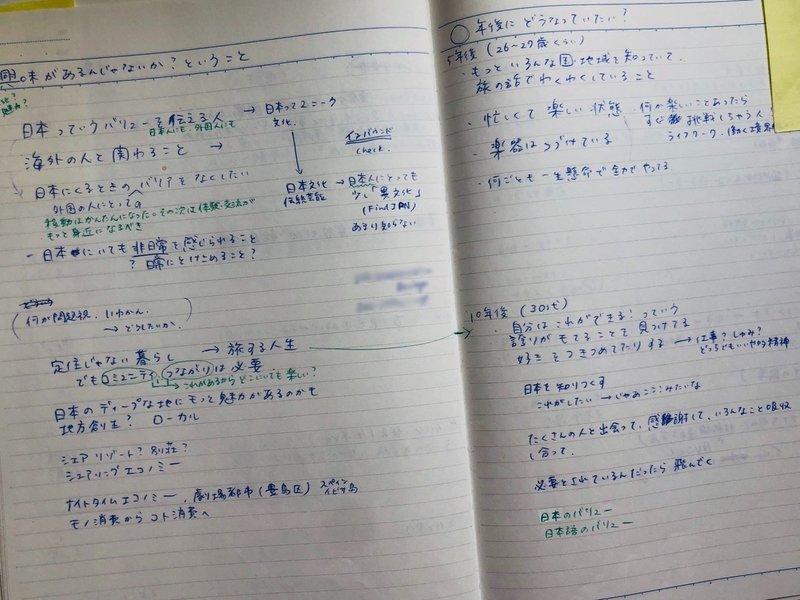 味があるんじゃないか?ということ
日本っていうバリューを伝える人 → 日本ってユニーク
日本人にも、外国人にも
文化。
海外の人と関わること →
インバウンド
check.
日本にくるときのバリアをなくしたい
外国の人にとっての
移動はかんたんになった。その次は体験・交流が
もっと身近になるべき
日本文化
伝統芸能
→ 日本人にとっても
少し「異文化」
(Find JPN)
あまり知らない
- 日本にいても非日常を感じられること
? 日常にとけこめること?
(何が問題視、いわかん、
→ どうしたいか、)
定住じゃない暮らし → 旅する人生
でもコミュニティ、つながりは必要
→ これがあるからどこにいても楽しい?
日本のディープな地にもっと魅力があるのかも
地方創生? ローカル
シェアリゾート? 別荘?
シェアリングエコノミー
ナイトタイムエコノミー、劇場都市(豊島区) スペイン
イビサ島
モノ消費からコト消費へ
○ 年後にどうなっていたい?
5年後 (26~27歳くらい)
・もっといろんな国・地域を知っていて、
旅の話でわくわくしていること
・忙しくて楽しい状態
・何か楽しいことあったら
すぐ挑戦しちゃう人
ライフワーク、働く環境
・楽器はつづけている
・何ごとも一生懸命で全力でやってる
10年後 (30代)
・自分はこれができる!っていう
誇りがもてることを見つけてる
好きをつきつめてたりする → 仕事?しゅみ?
どっちでもいいや的精神
日本を知りつくす
これがしたい → じゃあここ!みたいな
たくさんの人と出会って、感謝して、いろんなこと吸収
し合って、
必要とされているんだったら飛んでく
日本のバリュー
日本語のバリュー